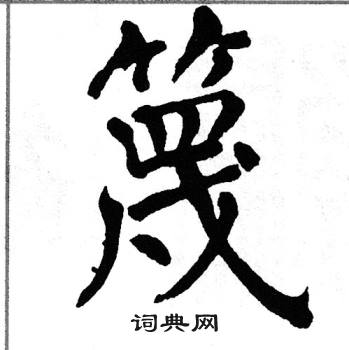 篾
词典网